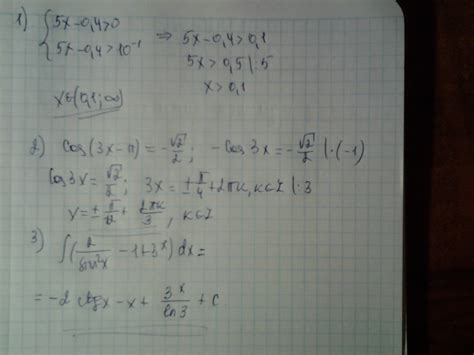 1) { 5x-0,4>0
5x-0,4>10⁻¹ ⇒ 5x-0,4>0,1
5x>0,5 |:5
x>0,1
x∈(0,1;∞)
2) Cos(3x-π)=-√2/2; -Cos3x=-√2/2 |·(-1)
Cos3x=√2/2; 3x=±π/4+2πk, k∈Z |:3
x=±π/12+2πk/3, k∈Z
3) ∫(2/sin²x -1+3ˣ)dx=
=-2ctgx-x+3ˣ/ln3+c